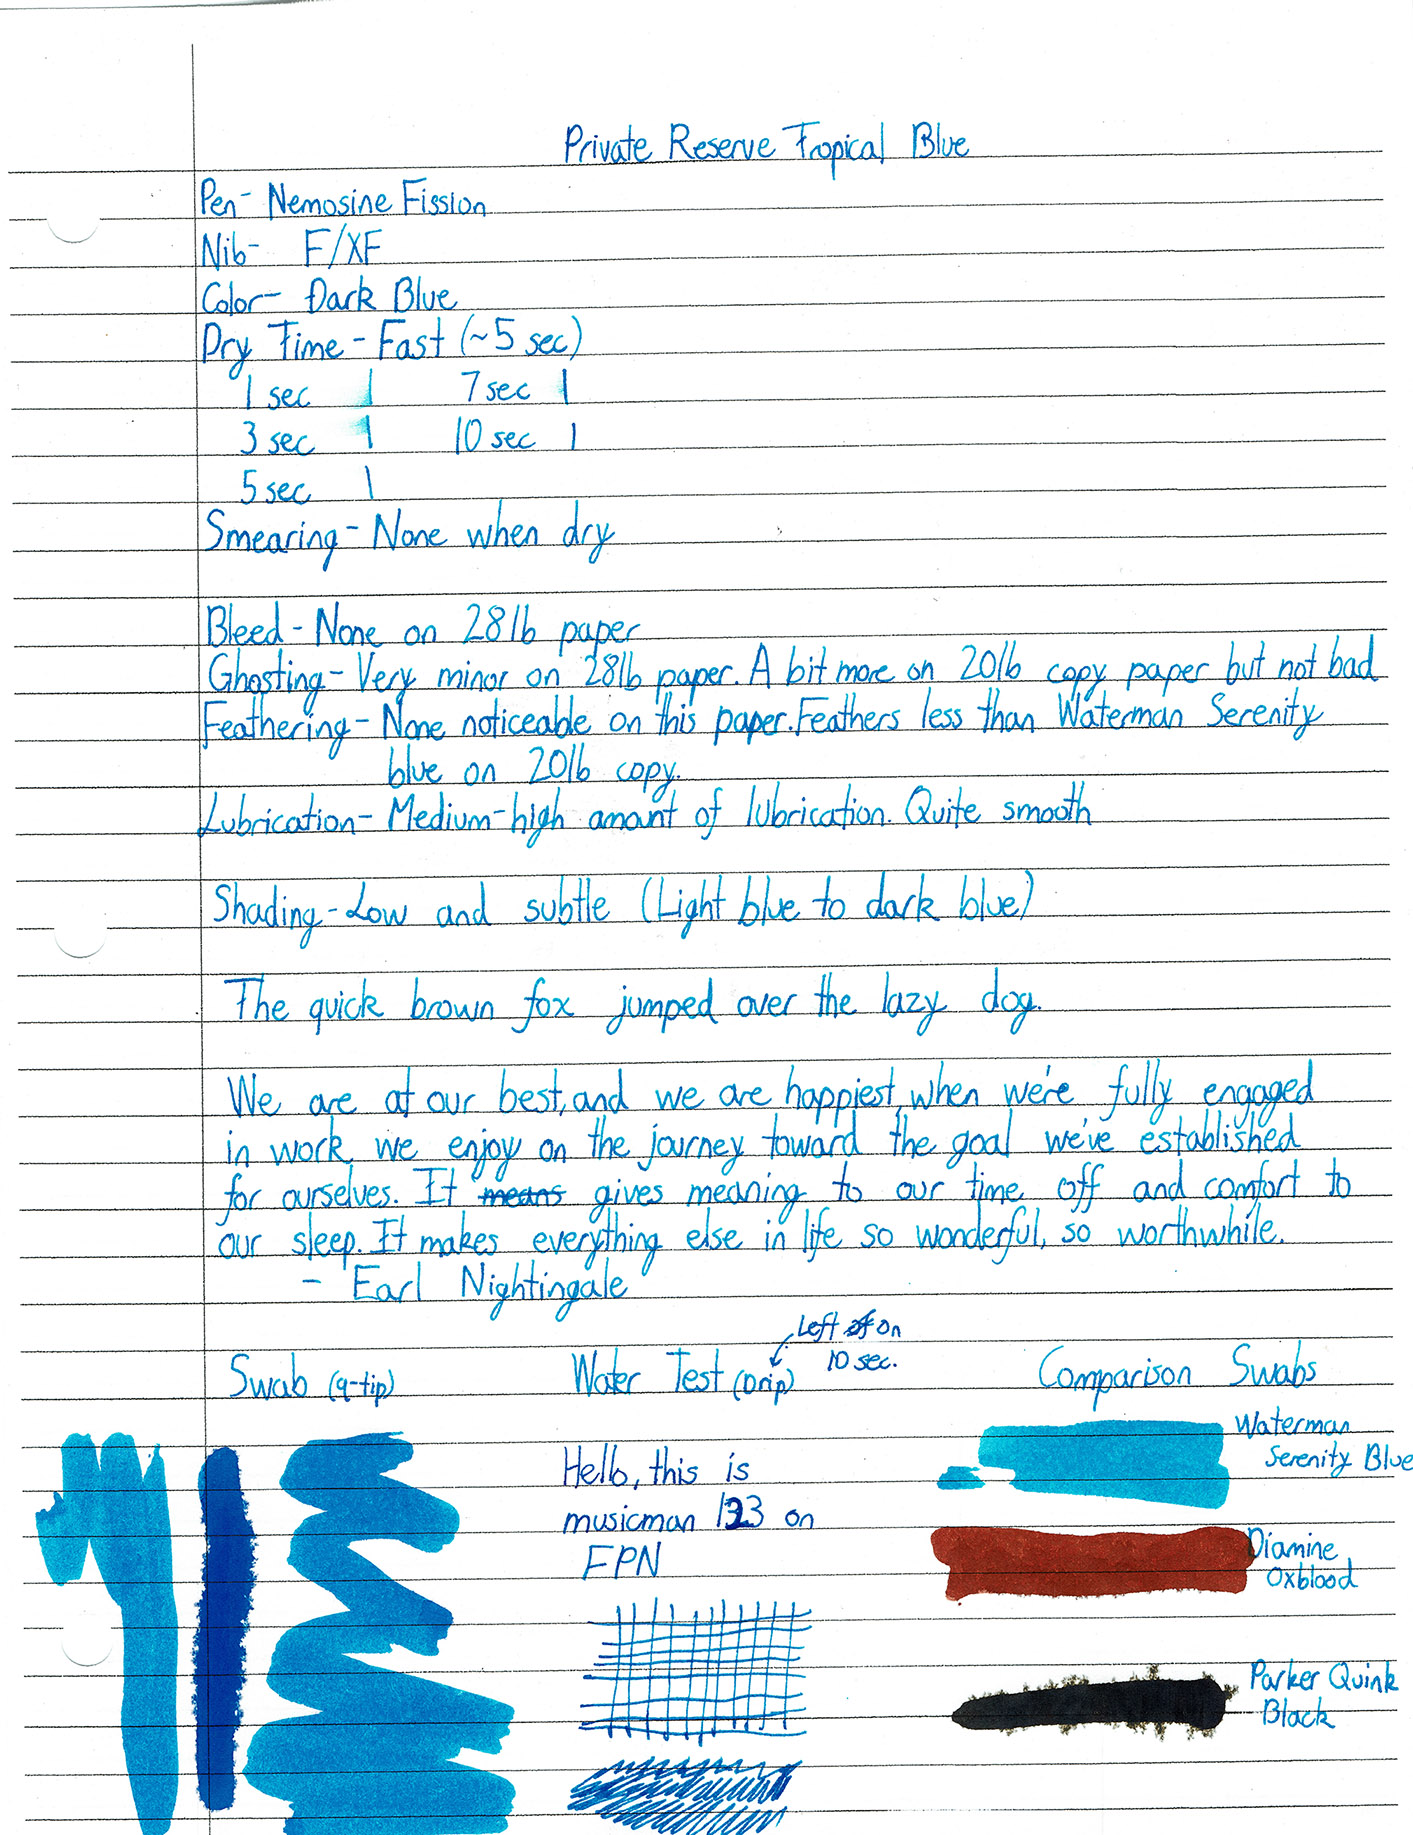 Private Reserve Tropical Blue
Pen- Nemosine Fission
Nib- F/XF
Color- Dark Blue
Dry Time - Fast (~5 sec)
1 sec 7 sec
3 sec 10 sec
5 sec
Smearing - None when dry
Bleed - None on 28lb paper
Ghosting - Very minor on 28lb paper. A bit more on 20lb copy paper but not bad
Feathering - None noticeable on this paper. Feathers less than Waterman Serenity
blue on 20lb copy.
Lubrication - Medium-high amount of lubrication. Quite smooth
Shading - Low and subtle (Light blue to dark blue)
The quick brown fox jumped over the lazy dog.
We are at our best, and we are happiest, when we're fully engaged
in work we enjoy on the journey toward the goal we've established
for ourselves. It means gives meaning to our time off and comfort to
our sleep. It makes everything else in life so wonderful, so worthwhile.
- Earl Nightingale
Left of on
10 sec.
Swab (q-tip) Water Test (Drip) Comparison Swabs
Waterman
Serenity Blue
Hello, this is
musicman 123 on
FPN
Diamine
Oxblood
Parker Quink
Black